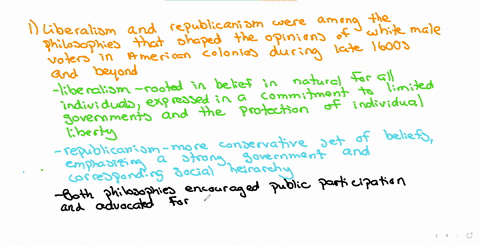 1) Liberalism and republicanism were among the
philosophies that shaped the opinions of white male
voters in American colonies during late 1600s
and beyond
-liberalism - rooted in belief in natural for all
individuals, expressed in a commitment to limited
governments and the protection of individual
liberty
-republicanism - more conservative set of beliefs,
emphasizing a strong government and
corresponding social heirarchy
-Both philosophies encouraged public participation
and advocated for